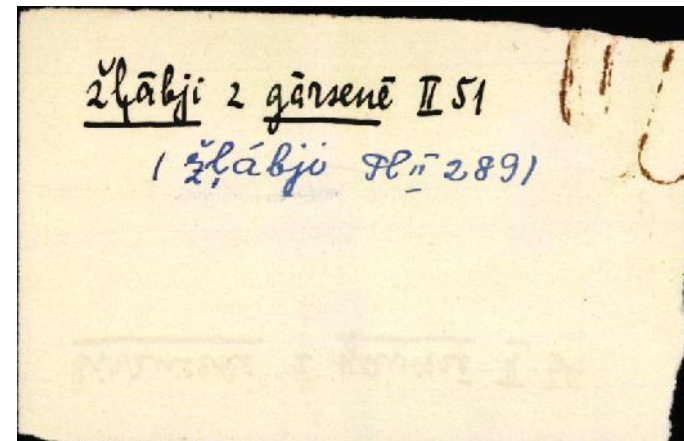 žļābji 2 gārsenē II 51
(žļábji Pl II 289)